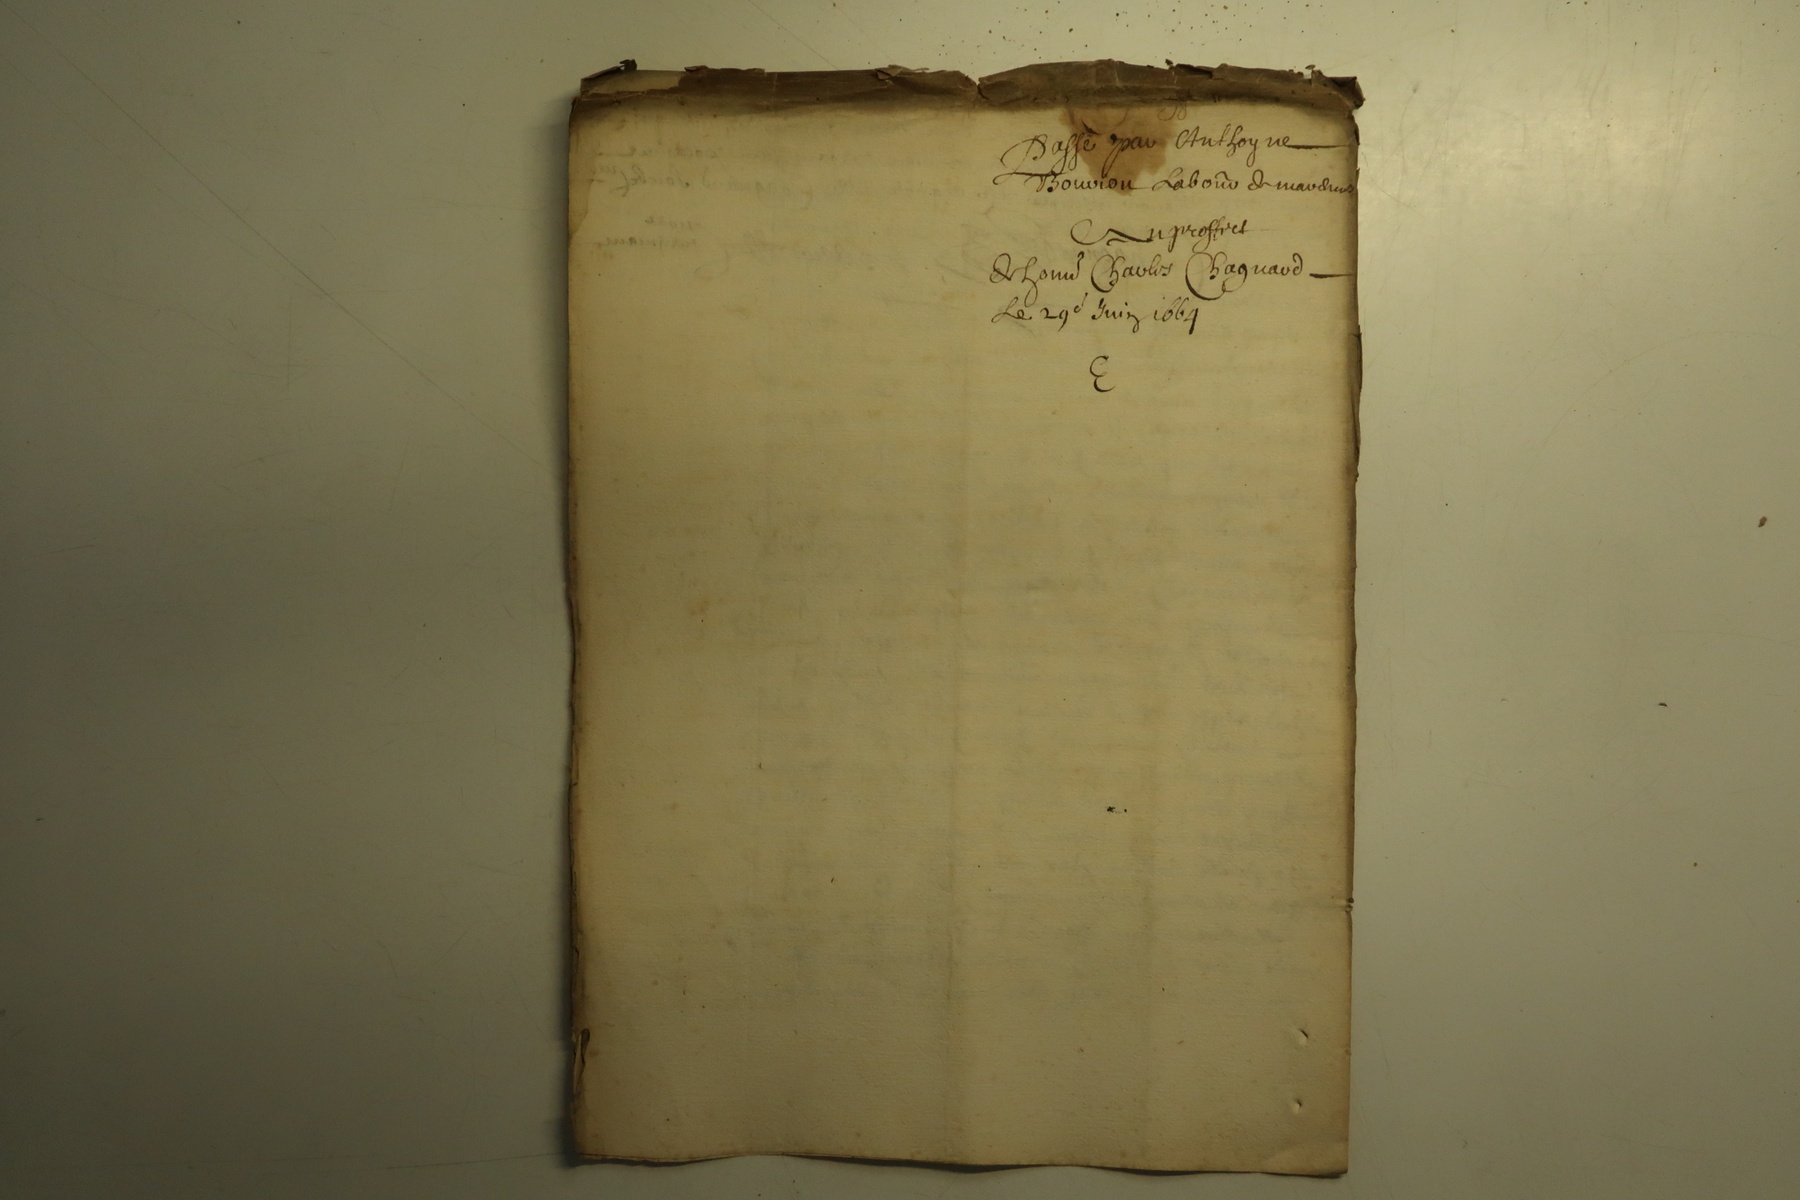 Passé par Anthoyne
Bouvion Labour de
Au proffict
de honn Charles Chagnard
Le 29e Juin 1664
E